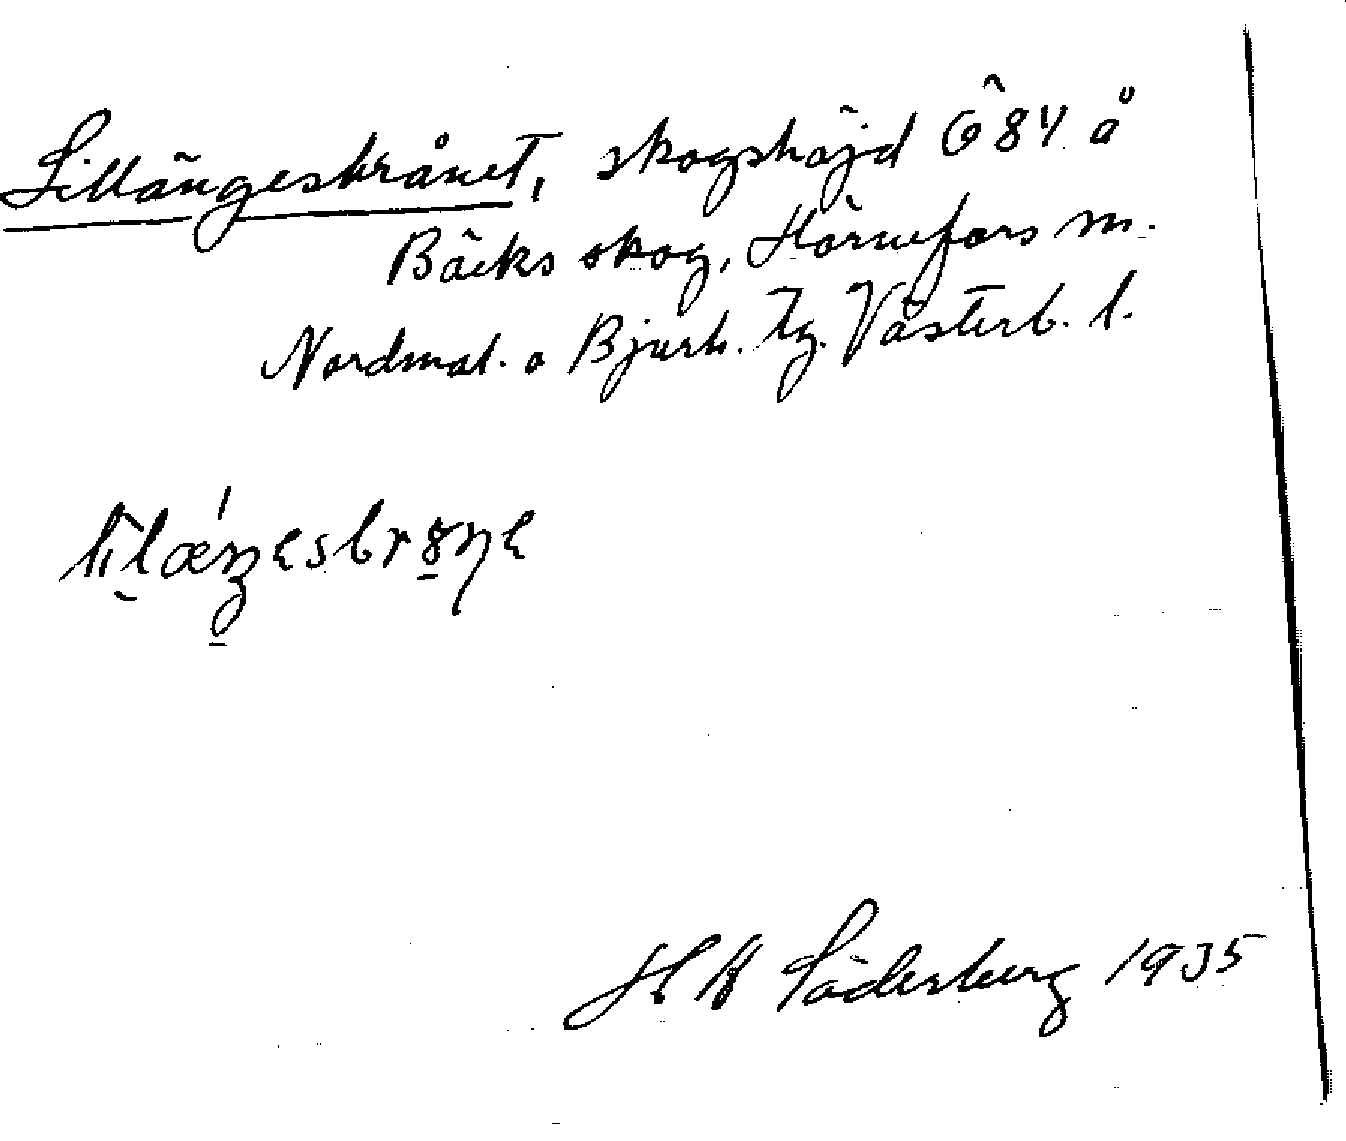 Lillängesbrånet, skogshöjd Ô 84 å
Bäcks skog, Hörnefors m.
Nordmal. o Bjurh. tg. Västerb. l.
H W Söderberg 1935